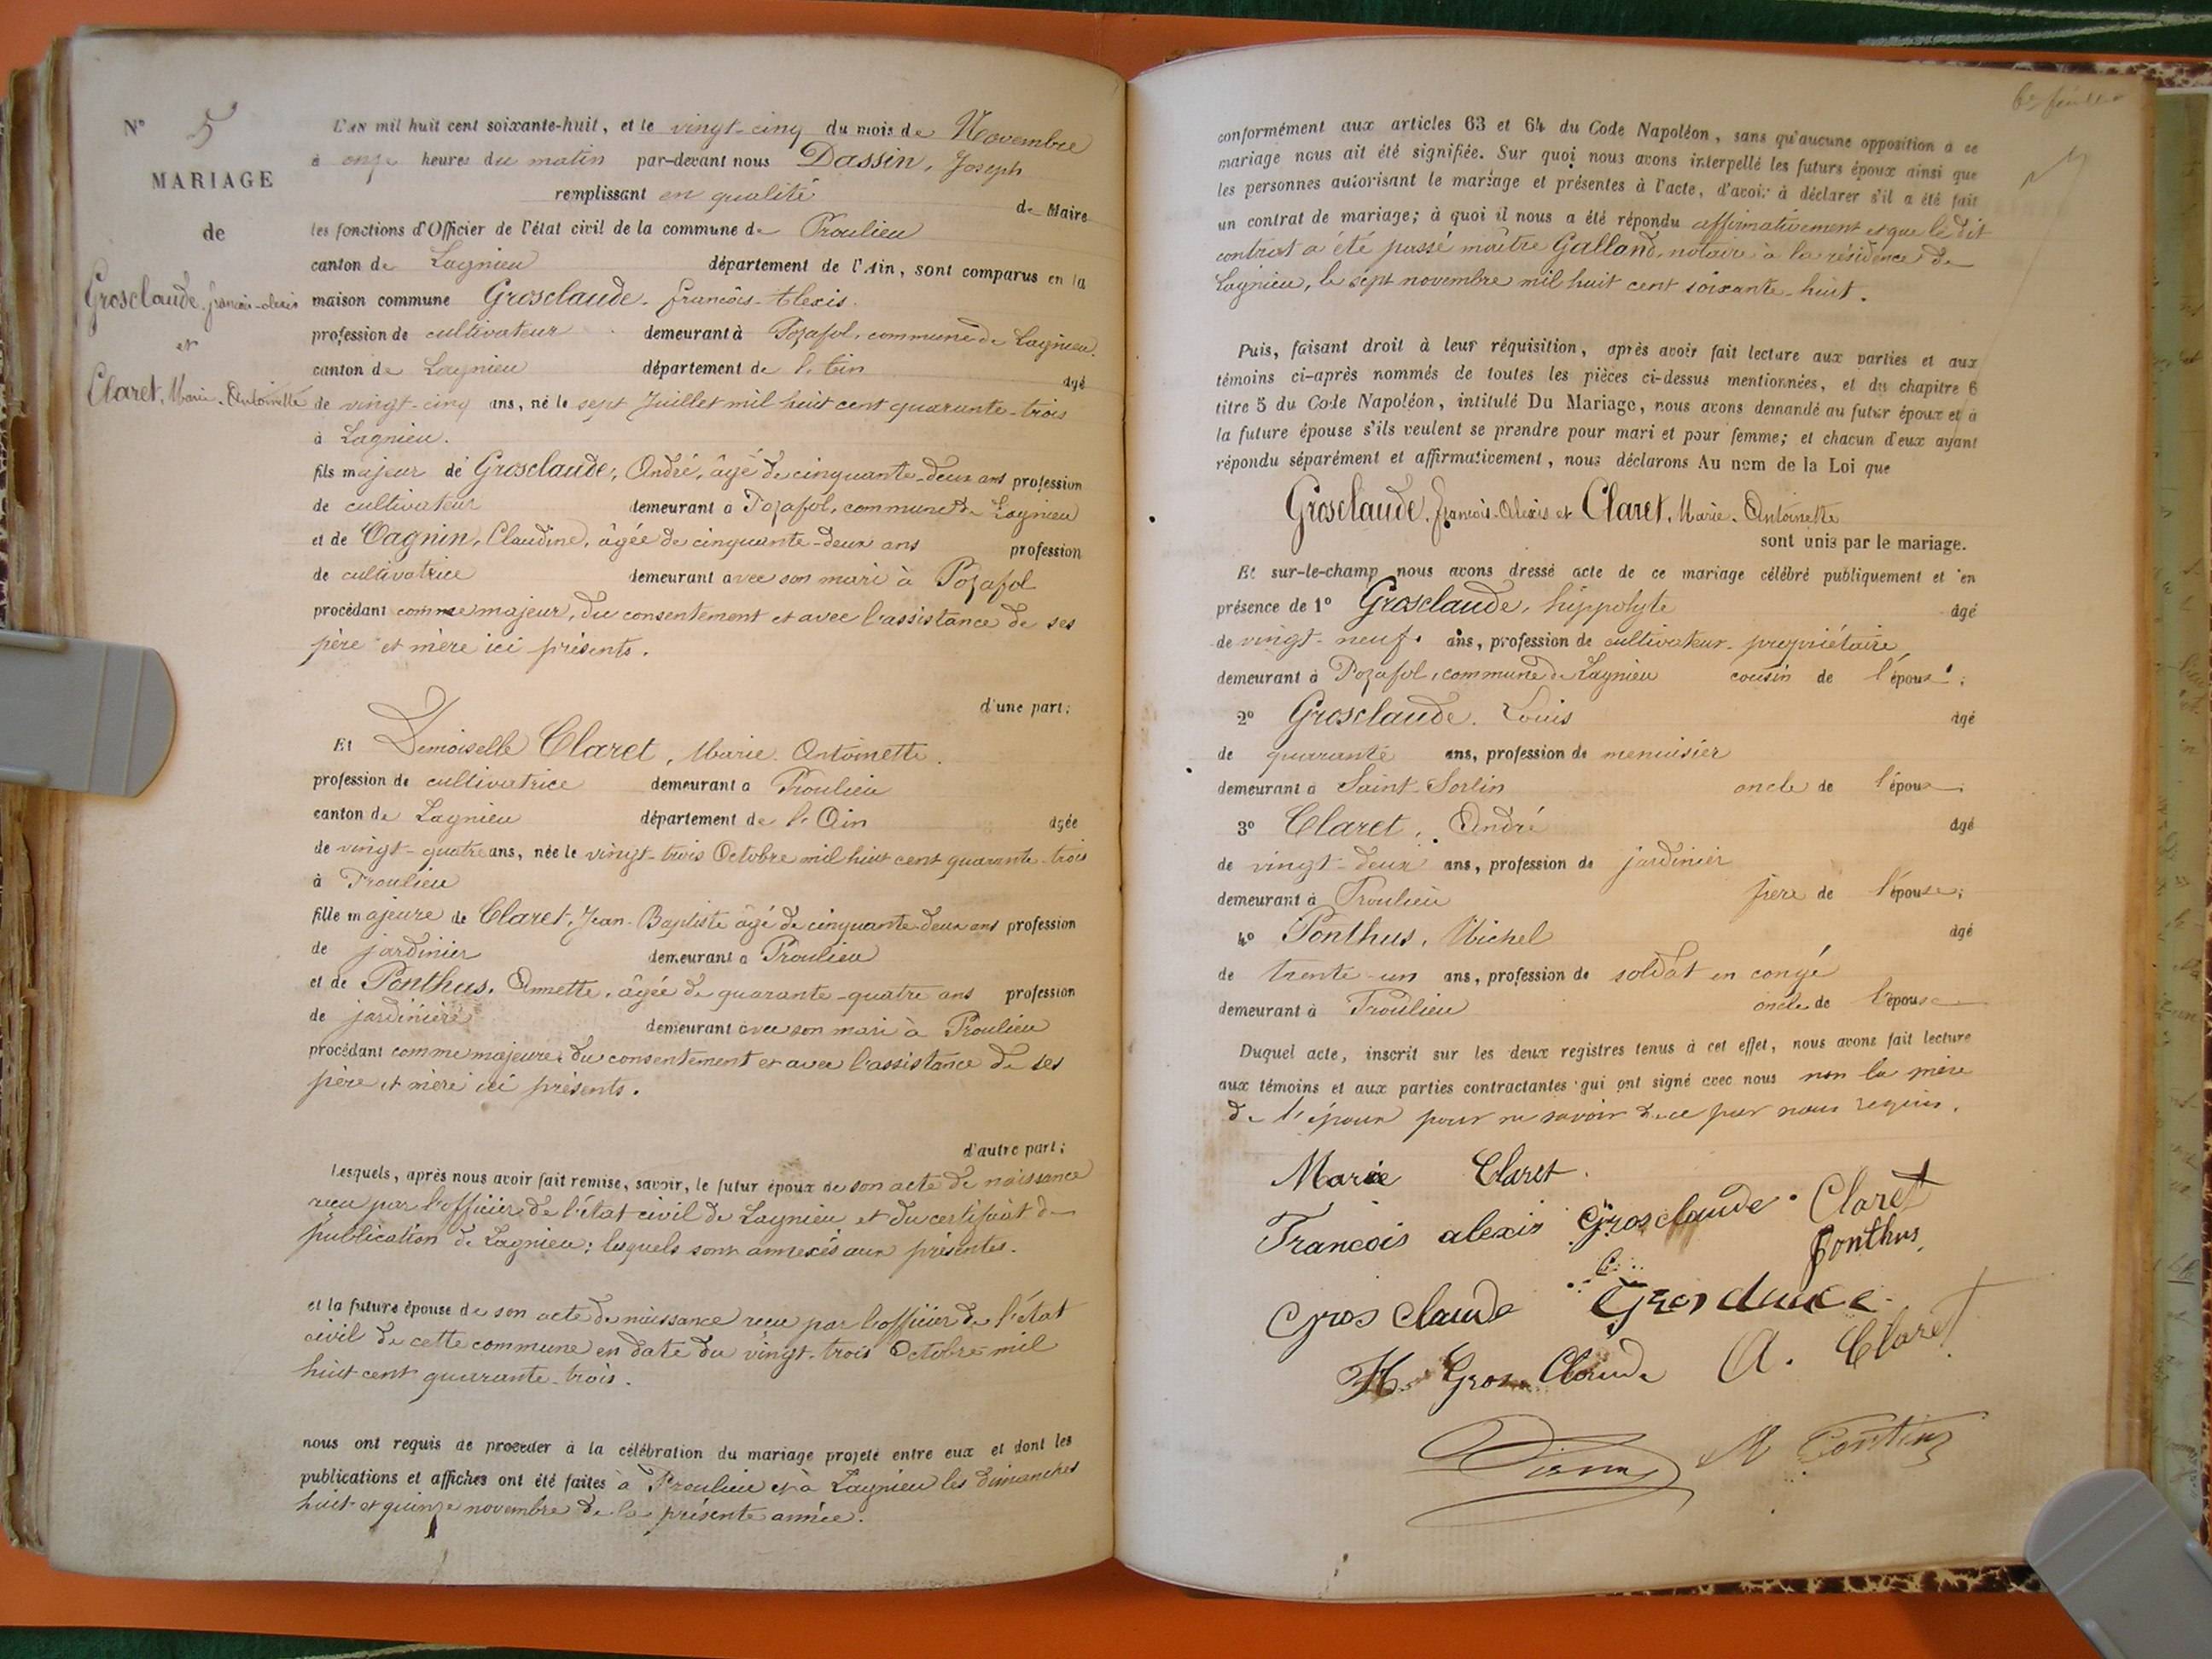 N° 5
MARIAGE
de
Grosclaude, françois-alexis
et
Claret, Marie-Antoinette
L'AN mil huit cent soixante-huit, et le vingt-cinq du mois de Novembre
à onze heures du matin par-devant nous Dassin, Joseph
remplissant en qualité de Maire
les fonctions d'Officier de l'état civil de la commune de Proulieu
canton de Lagnieu département de l'Ain, sont comparus en la
maison commune Grosclaude, françois-Alexis.
profession de cultivateur demeurant à Pozafol, commune de Lagnieu.
canton de Lagnieu département de l'Ain âgé
de vingt-cinq ans, né le sept Juillet mil huit cent quarante-trois
à Lagnieu.
fils majeur de Grosclaude, André, âgé de cinquante-deux ans profession
de cultivateur demeurant a Pozafol, commune de Lagnieu
et de Vagnin, Claudine, âgée de cinquante-deux ans profession
de cultivatrice demeurant avec son mari à Pozafol
procédant comme majeur, du consentement et avec l'assistance de ses
père et mère ici présents.
d'une part;
Et Demoiselle Claret, Marie-Antoinette.
profession de cultivatrice demeurant a Proulieu
canton de Lagnieu département de l'Ain âgée
de vingt-quatre ans, née le vingt-trois Octobre mil huit cent quarante-trois
à Proulieu
fille majeure de Claret, Jean-Baptiste âgé de cinquante-deux ans profession
de jardinier demeurant a Proulieu
et de Ponthus, Annette, âgée de quarante-quatre ans profession
de jardinière demeurant avec son mari à Proulieu
procédant comme majeure, du consentement et avec l'assistance de ses
père et mère ici présents.
d'autre part;
Lesquels, après nous avoir fait remise, savoir, le futur époux de son acte de naissance
reçu par l'officier de l'état civil de Lagnieu et du certificat de
publication de Lagnieu; lesquels sont annexés aux présentes.
et la future épouse de son acte de naissance reçu par l'officier de l'état
civil de cette commune en date du vingt-trois Octobre mil
huit cent quarante-trois.
nous ont requis de procéder à la célébration du mariage projeté entre eux et dont les
publications et affiches ont été faites à Proulieu et à Lagnieu les dimanches
huit et quinze novembre de la présente année.
conformément aux articles 63 et 64 du Code Napoléon, sans qu'aucune opposition à ce
mariage nous ait été signifiée. Sur quoi nous avons interpellé les futurs époux ainsi que
les personnes autorisant le mariage et présentes à l'acte, d'avoir à déclarer s'il a été fait
un contrat de mariage; à quoi il nous a été répondu affirmativement et que le dit
contrat a été passé maître Galland, notaire à la résidence de
Lagnieu, le sept novembre mil huit cent soixante-huit.
Puis, faisant droit à leur réquisition, après avoir fait lecture aux parties et aux
témoins ci-après nommés de toutes les pièces ci-dessus mentionnées, et du chapitre 6
titre 5 du Code Napoléon, intitulé Du Mariage, nous avons demandé au futur époux et à
la future épouse s'ils veulent se prendre pour mari et pour femme; et chacun d'eux ayant
répondu séparément et affirmativement, nous déclarons Au nom de la Loi que
Grosclaude, françois-Alexis et Claret, Marie-Antoinette
sont unis par le mariage.
Et sur-le-champ nous avons dressé acte de ce mariage célébré publiquement et en
présence de 1° Grosclaude, hippolyte âgé
de vingt-neuf ans, profession de cultivateur-propriétaire
demeurant à Pozafol, commune de Lagnieu cousin de l'époux;
2° Grosclaude, Louis âgé
de quarante ans, profession de menuisier
demeurant à Saint-Sorlin oncle de l'époux;
3° Claret, André âgé
de vingt-deux ans, profession de jardinier
demeurant à Proulieu frère de l'épouse;
4° Ponthus, Michel âgé
de trente-un ans, profession de soldat en congé
demeurant à Proulieu oncle de l'épouse
Duquel acte, inscrit sur les deux registres tenus à cet effet, nous avons fait lecture
aux témoins et aux parties contractantes qui ont signé avec nous non la mère
de l'époux pour ne savoir de ce par nous requis.
Marie Claret.
François alexis Grosclaude Claret
Ponthus
Gros claude Grosclaude
H. Gros Claude A. Claret
M Ponthus